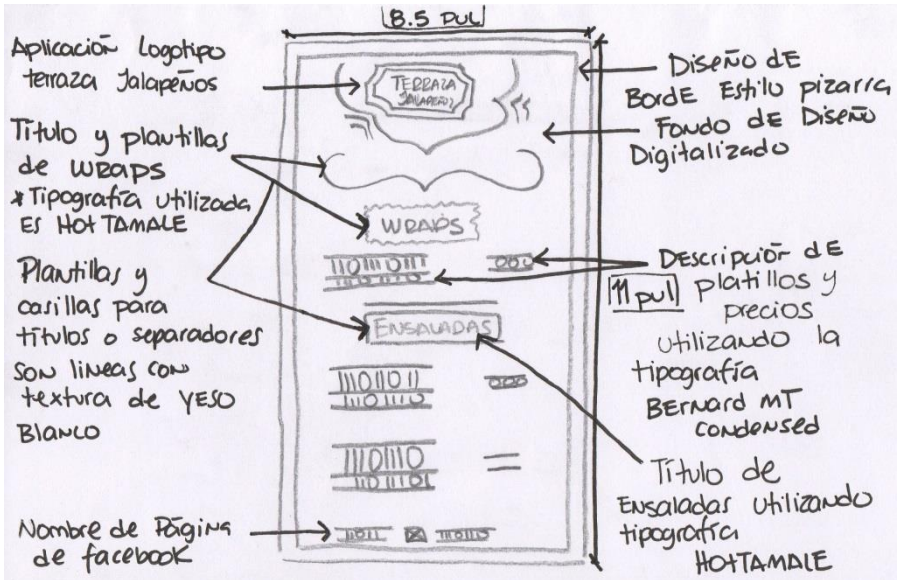 8.5 pul
Aplicación Logotipo
terraza Jalapeños
Título y plantillas
de WRAPS
*Tipografía utilizada
ES HOT TAMALE
Plantillas y
casillas para
títulos o separadores
SON lineas con
textura de YESO
BLANCO
Nombre de Página
de facebook
TERRAZA
JALAPEÑOZ
WRAPS
ENSALADAS
Diseño dE
BordE Estilo pizarra
Fondo dE Diseño
Digitalizado
Descripción dE
11 pul
platillos y
precios
utilizando la
tipografía
BERNARD MT
condensed
Título de
Ensaladas utilizando
tipografía
HOTTAMALE